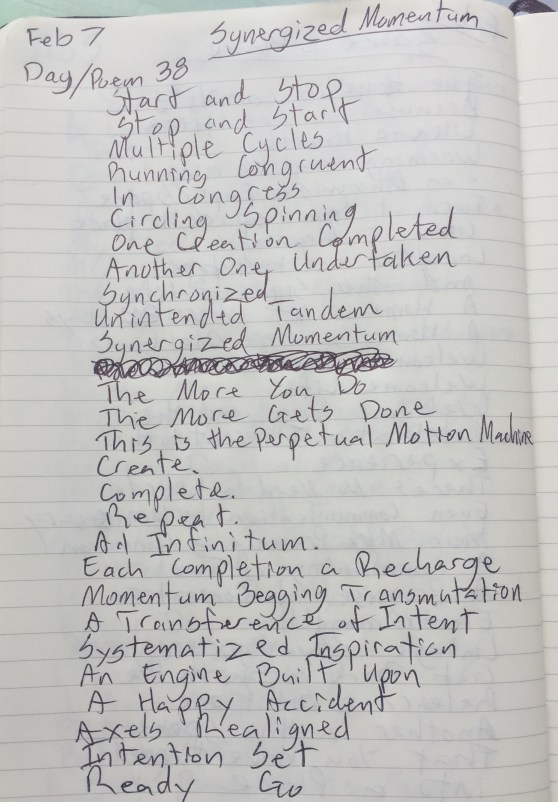 Feb 7 Synergized Momentum
Day/Poem 38
Start and Stop
Stop and Start
Multiple Cycles
Running Congruent
In Congress
Circling Spinning
One Creation Completed
Another One Undertaken
Synchronized
Unintended Tandem
Synergized Momentum
The More You Do
The More Gets Done
This is the Perpetual Motion Machine
Create.
Complete.
Repeat.
Ad Infinitum.
Each Completion a Recharge
Momentum Begging Transmutation
A Transference of Intent
Systematized Inspiration
An Engine Built Upon
A Happy Accident
Axels Realigned
Intention Set
Ready Go